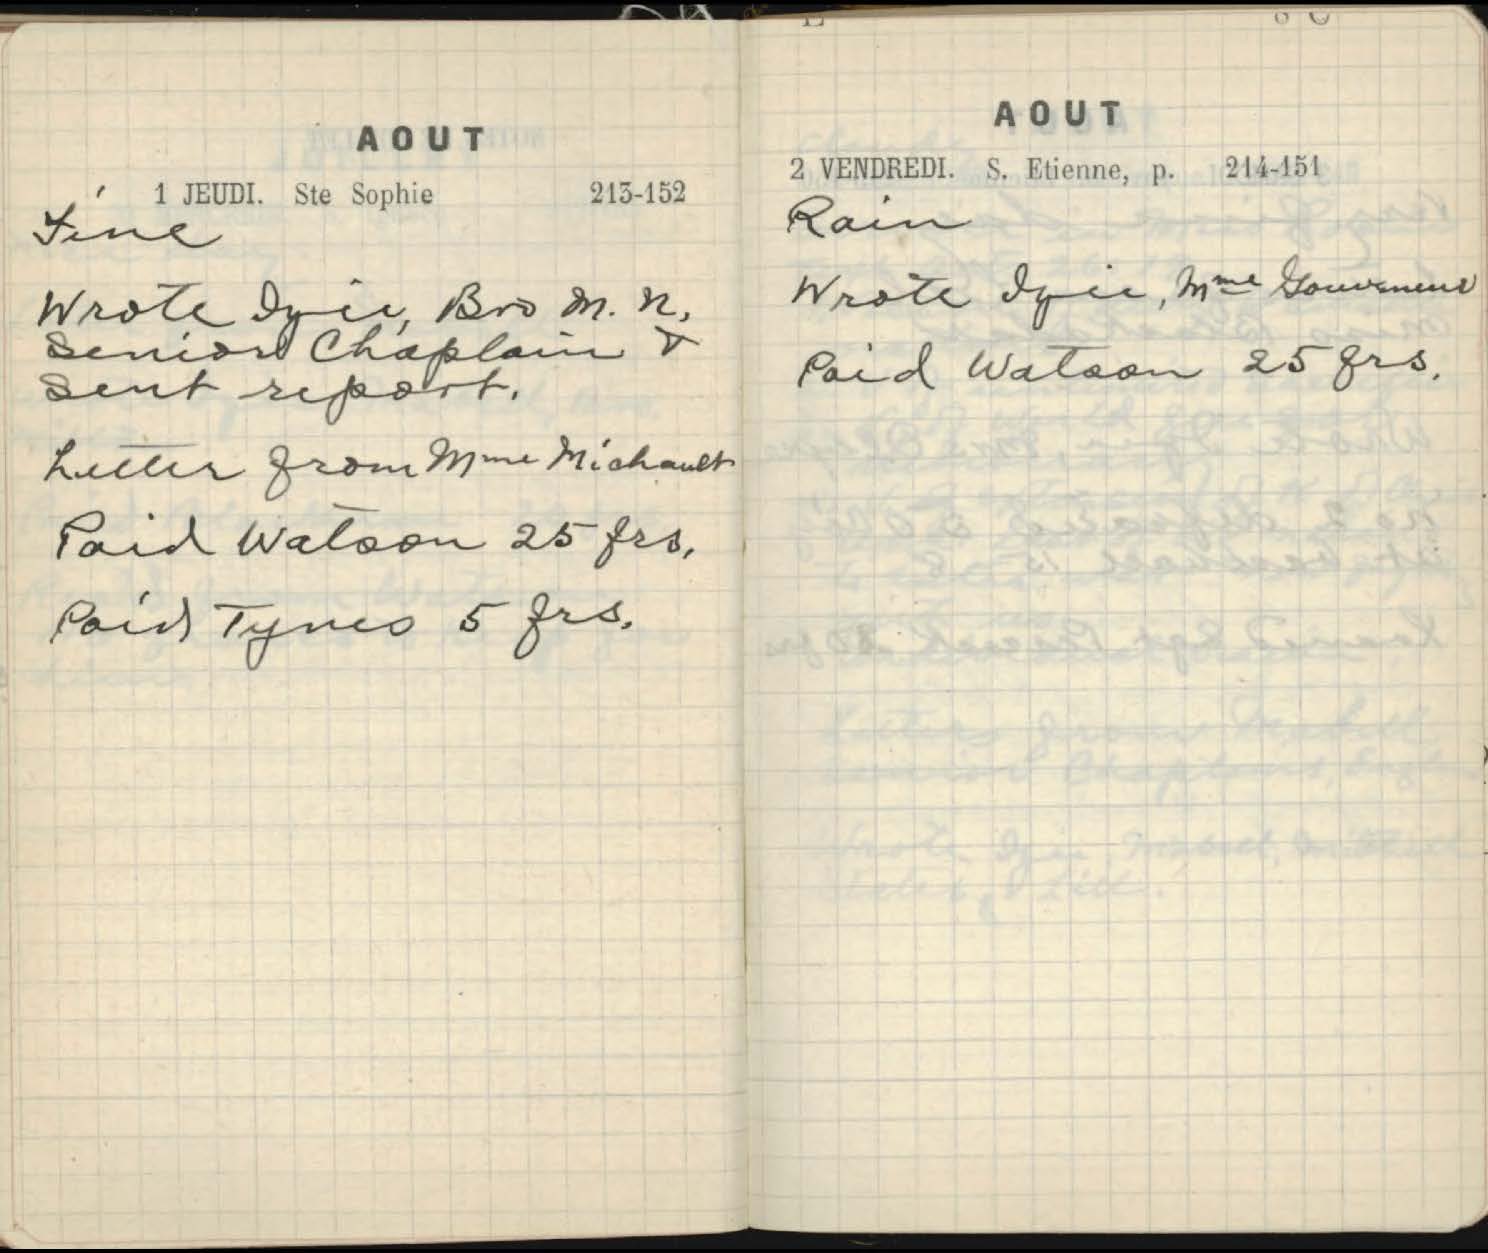 AOUT
1 JEUDI. Ste Sophie 213-152
Fine
Wrote Izie, Bro M. N,
Senior Chaplain &
sent report.
Letter from Mme Michault
Paid Watson 25 frs.
Paid Tynes 5 frs.
AOUT
2 VENDREDI. S. Etienne, p. 214-151
Rain
Wrote Izie, Mme
Paid Watson 25 frs.